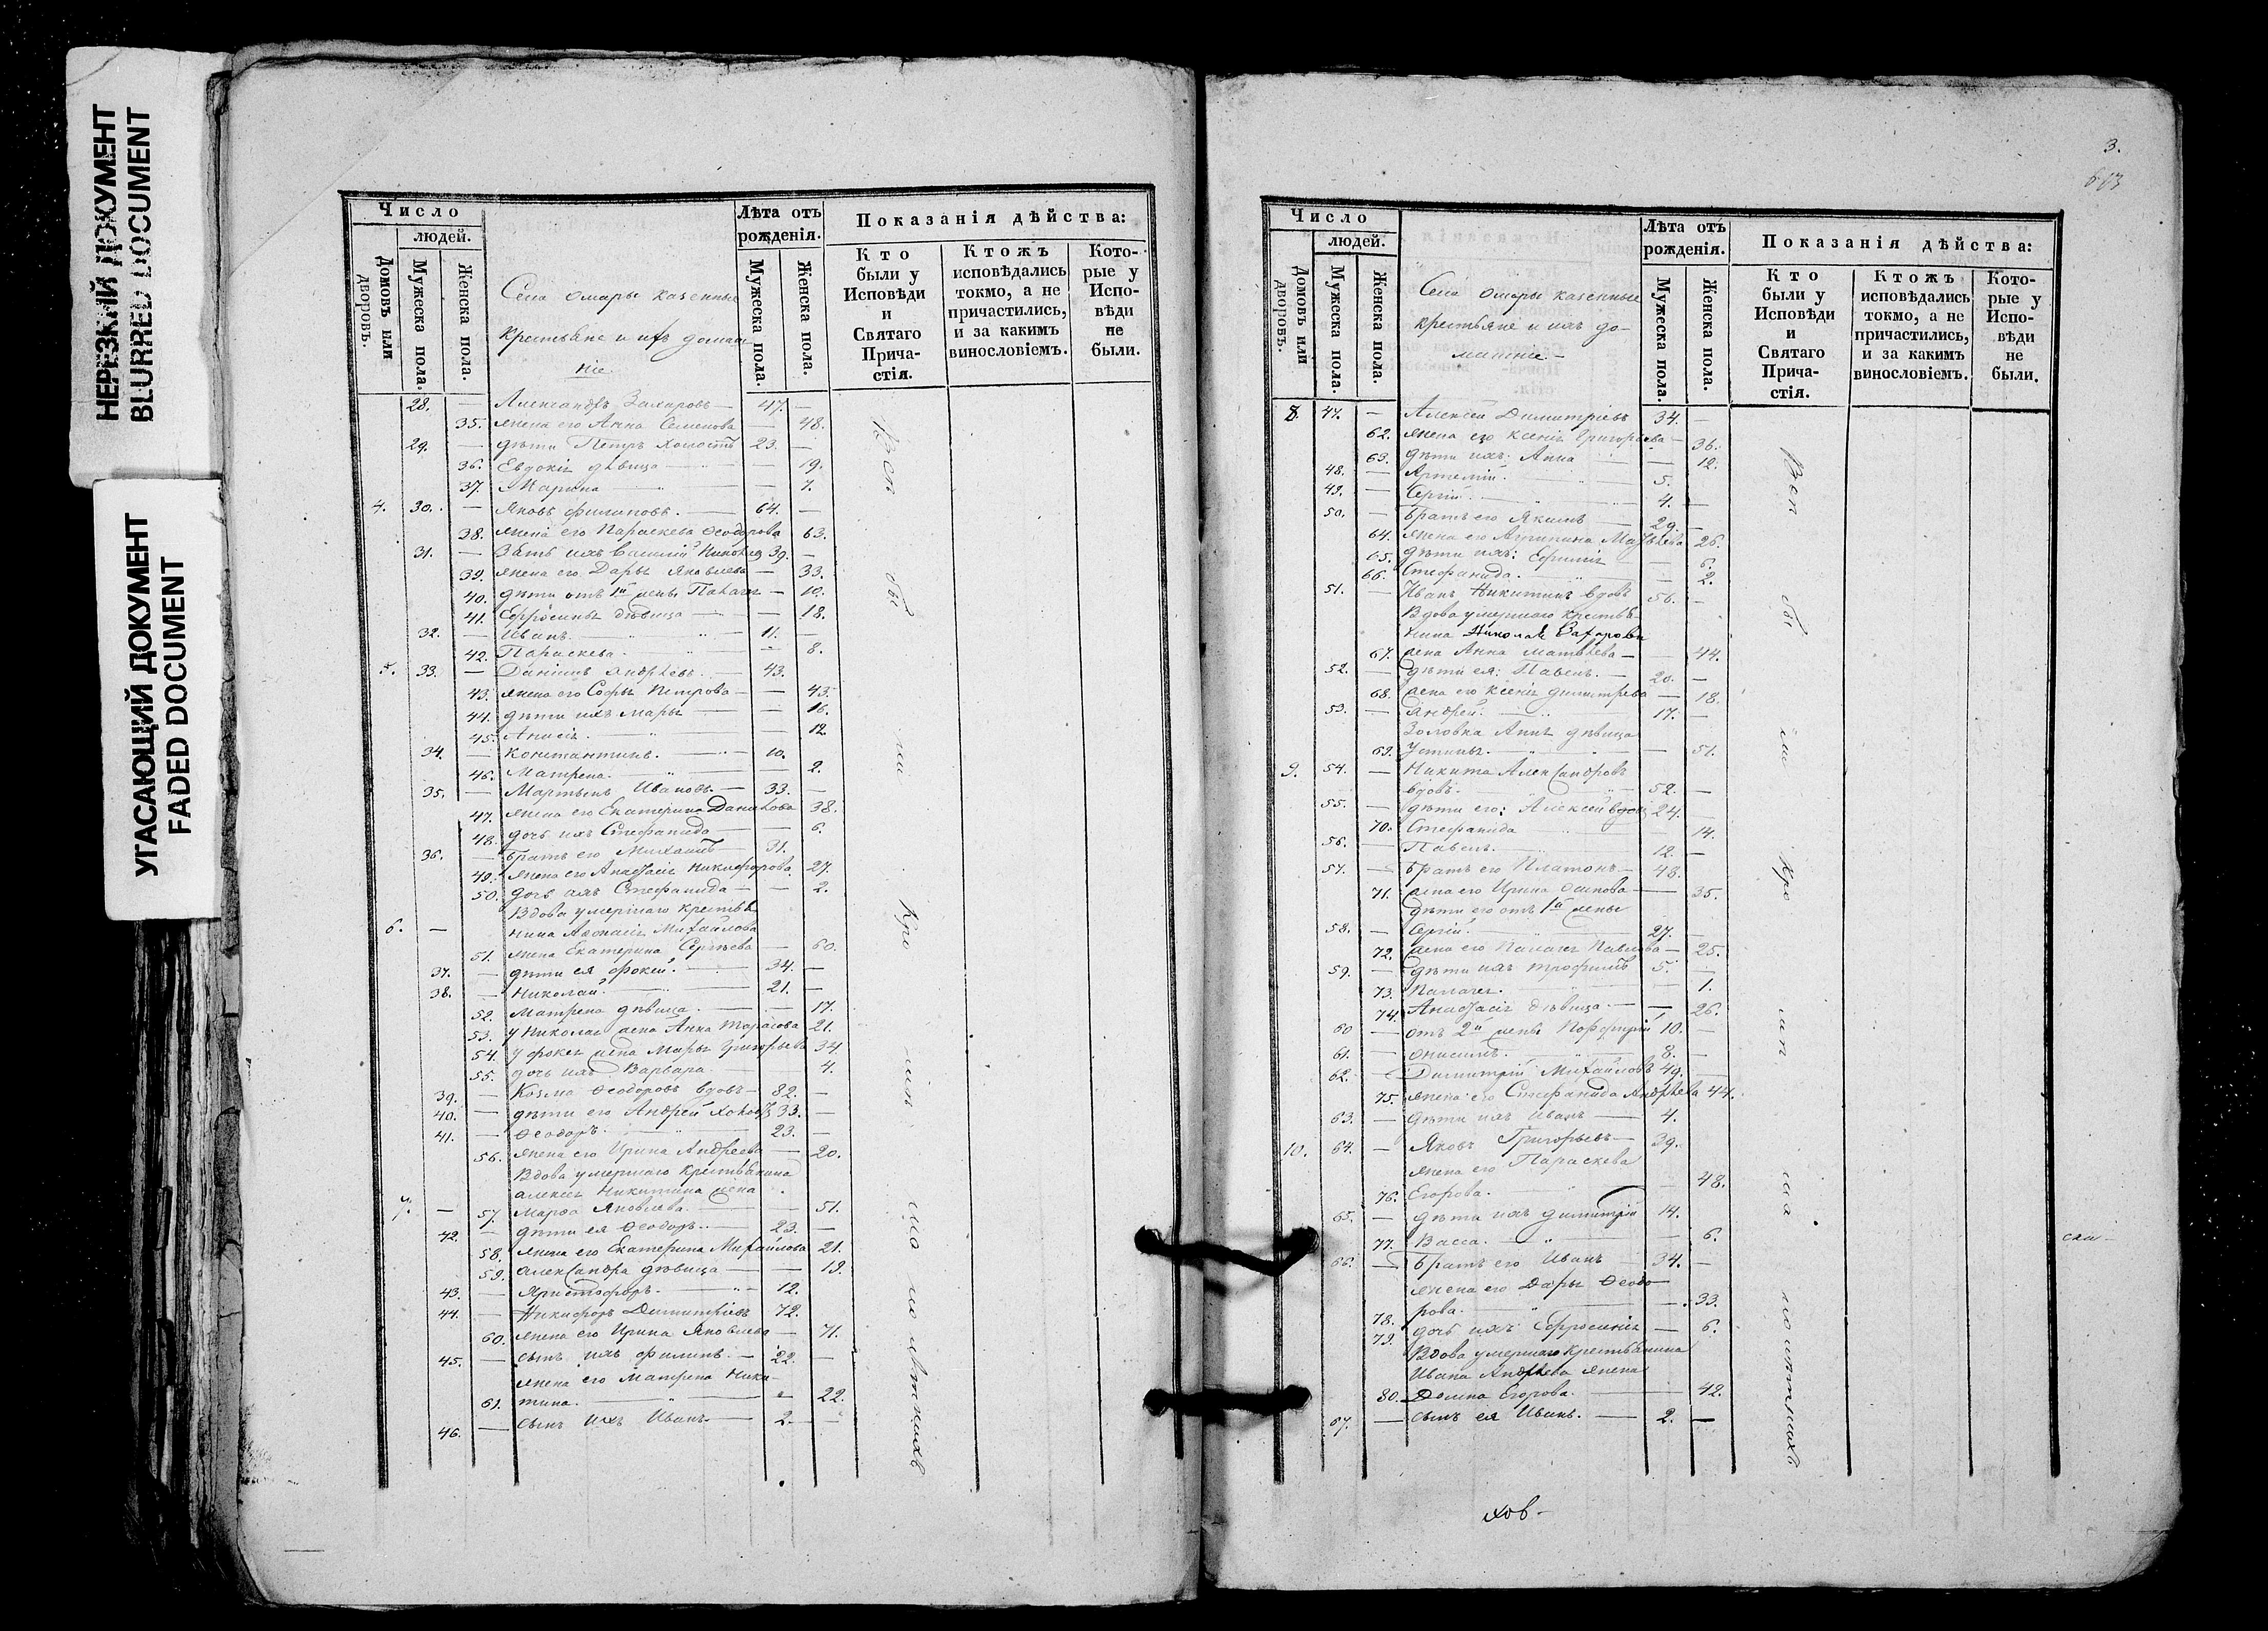 НЕРЕЗКИЙ ДОКУМЕНТ
BLURRED DOCUMENT
УГАСАЮЩИЙ ДОКУМЕНТ
FADED DOCUMENT
Число
людей.
Домовъ или дворовъ.
Мужеска пола.
Женска пола.
Села Омары казенные
крестьяне и ихъ домаш
ніе.
Лѣта отъ рожденія.
Мужеска пола.
Женска пола.
Показанія дѣйства:
Кто были у Исповѣди и Святаго Прича-стія.
Ктожъ исповѣдались токмо, а не причастились, и за какимъ винословіемъ.
Кото-рые у Испо-вѣди не были.
28. — Александръ Захаровъ — 47. —
35. жена его Анна Семенова — 48.
29. — дѣти Петръ холостъ 23. —
36. Евдокія дѣвица — 19.
37. Марина — 7.
4. 30. — Яковъ Филиповъ. — 64. —
38. жена его Параскева Ѳеодорова 63.
31. — Зять ихъ Василій 39. —
39. жена его Дарья Яковлева — 33.
40. дѣти отъ 1й жены — 10.
41. Ефросинья дѣвица — 18.
32. — Иванъ. — 11. —
42. Параскева. — 8.
5. 33. — Даніилъ Андреевъ — 43.
43. жена его Софья Петрова — 43.
44. дѣти ихъ Марья — 16.
45. Анисія. — 12.
34. — Константинъ. — 10.
46. Матрена. — 2.
35. — Мартынъ Ивановъ. — 33. —
47. жена его Екатерина Данилова 38.
48. дочь ихъ Стефанида — 6.
36. — братъ его Михаилъ — 31.
49. жена его Анастасія Никифорова 27.
50. дочь ихъ Стефанида — 2.
Вдова умершаго крестья
6. — нина Аѳонасія Михайлова
51. жена Екатерина Сергѣева — 60.
37. — дѣти ея Фокей. — 34. —
38. — Николай. — 21. —
52. Матрена дѣвица. — 17.
53. у Николая жена Анна Тарасова 21.
54. у Фокея жена Марья Григорьева 34.
55. дочь ихъ Варвара — 4.
39. — Козма Ѳеодоровъ вдовъ — 82. —
40. — дѣти его Андрей холостъ 33. —
41. — Ѳеодоръ. — 23. —
56. жена его Ирина Андреева — 20.
Вдова умершаго крестьянина
Алексія Никитина жена
7. — 57. Марѳа Яковлева. — 51.
42. — дѣти ея Ѳеодоръ. — 23. —
58. жена его Екатерина Михайлова 21.
59. Александра дѣвица — 19.
43. — Христофоръ. — 12.
44. — Никифоръ Димитріевъ 72.
60. жена его Ирина Яковлева — 71.
45. — сынъ ихъ Филипъ. — 22. —
жена его Матрена Ники-
61. тина. — 22.
46. — сынъ ихъ Иванъ. — 2. —
Всѣ бы ли Кро мѣ ма ло лѣтнихъ
3.
Число
людей.
Домовъ или дворовъ.
Мужеска пола.
Женска пола.
Села Омары казенные
крестьяне и ихъ до-
машніе. —
Лѣта отъ рожденія.
Мужеска пола.
Женска пола.
Показанія дѣйства:
Кто были у Исповѣди и Святаго Прича-стія.
Ктожъ исповѣдались токмо, а не причастились, и за какимъ винословіемъ.
Кото-рые у Испо-вѣди не были.
8. 47. — Алексѣй Димитріевъ 34. —
62. жена его Ксенія Григорьева — 36.
63. дѣти ихъ: Анна — 12.
48. — Артемій. 5.
49. — Сергій. 4. —
50. — братъ его Якимъ — 29. —
64. жена его Агрипина Матвѣева 26.
65. дѣти ихъ: — 6.
66. Стефанида. — 2.
51. — Иванъ Никитинъ вдовъ 56. —
Вдова умершаго крестья-
нина Николая Захарова
67. жена Анна Матвѣева — 44.
52. — дѣти ея: Павелъ. — 20. —
68. жена его Ксенія Димитрева — 18.
53. — Андрей. 17. —
Золовка Анны дѣвица
69. Устинья. — 51.
9. 54. — Никита Александровъ
вдовъ. 52. —
55. — дѣти его: Алексѣй вдовъ 24.
70. Стефанида — 14.
56. — Павелъ. 12. —
57. — братъ его Платонъ — 48.
71. жена его Ирина Осипова — 35.
дѣти его отъ 1й жены
58. — Сергій. 27. —
72. жена его Палагея Павлова — 25.
59. — дѣти ихъ Трофимъ 5. —
73. Палагея. — 1.
74. Анастасія дѣвица — 26.
60 — отъ 2й жены Порфирій 10. —
61. — Онисимъ. 8. —
62. — Димитрій Михайловъ 49. —
75. жена его Стефанида Андреева 44.
63. — дѣти ихъ Иванъ — 4.
10. 64. — Яковъ Григорьевъ — 39.
жена его Параскева
76. Егорова. — 48.
65. — дѣти ихъ Димитрій 14.
77. Васса. — 6.
66. — братъ его Иванъ 34. —
жена его Дарья Ѳеодо
78. рова. — 33.
79. дочь ихъ Ефросинія — 6.
Вдова умершаго крестьянина
Ивана Андреева жена
80. Домна Егорова. — 42.
67. — сынъ ея Иванъ. — 2. —
Всѣ бы ли Кро мѣ ма ло лѣтнихъ
ски —
ховъ —